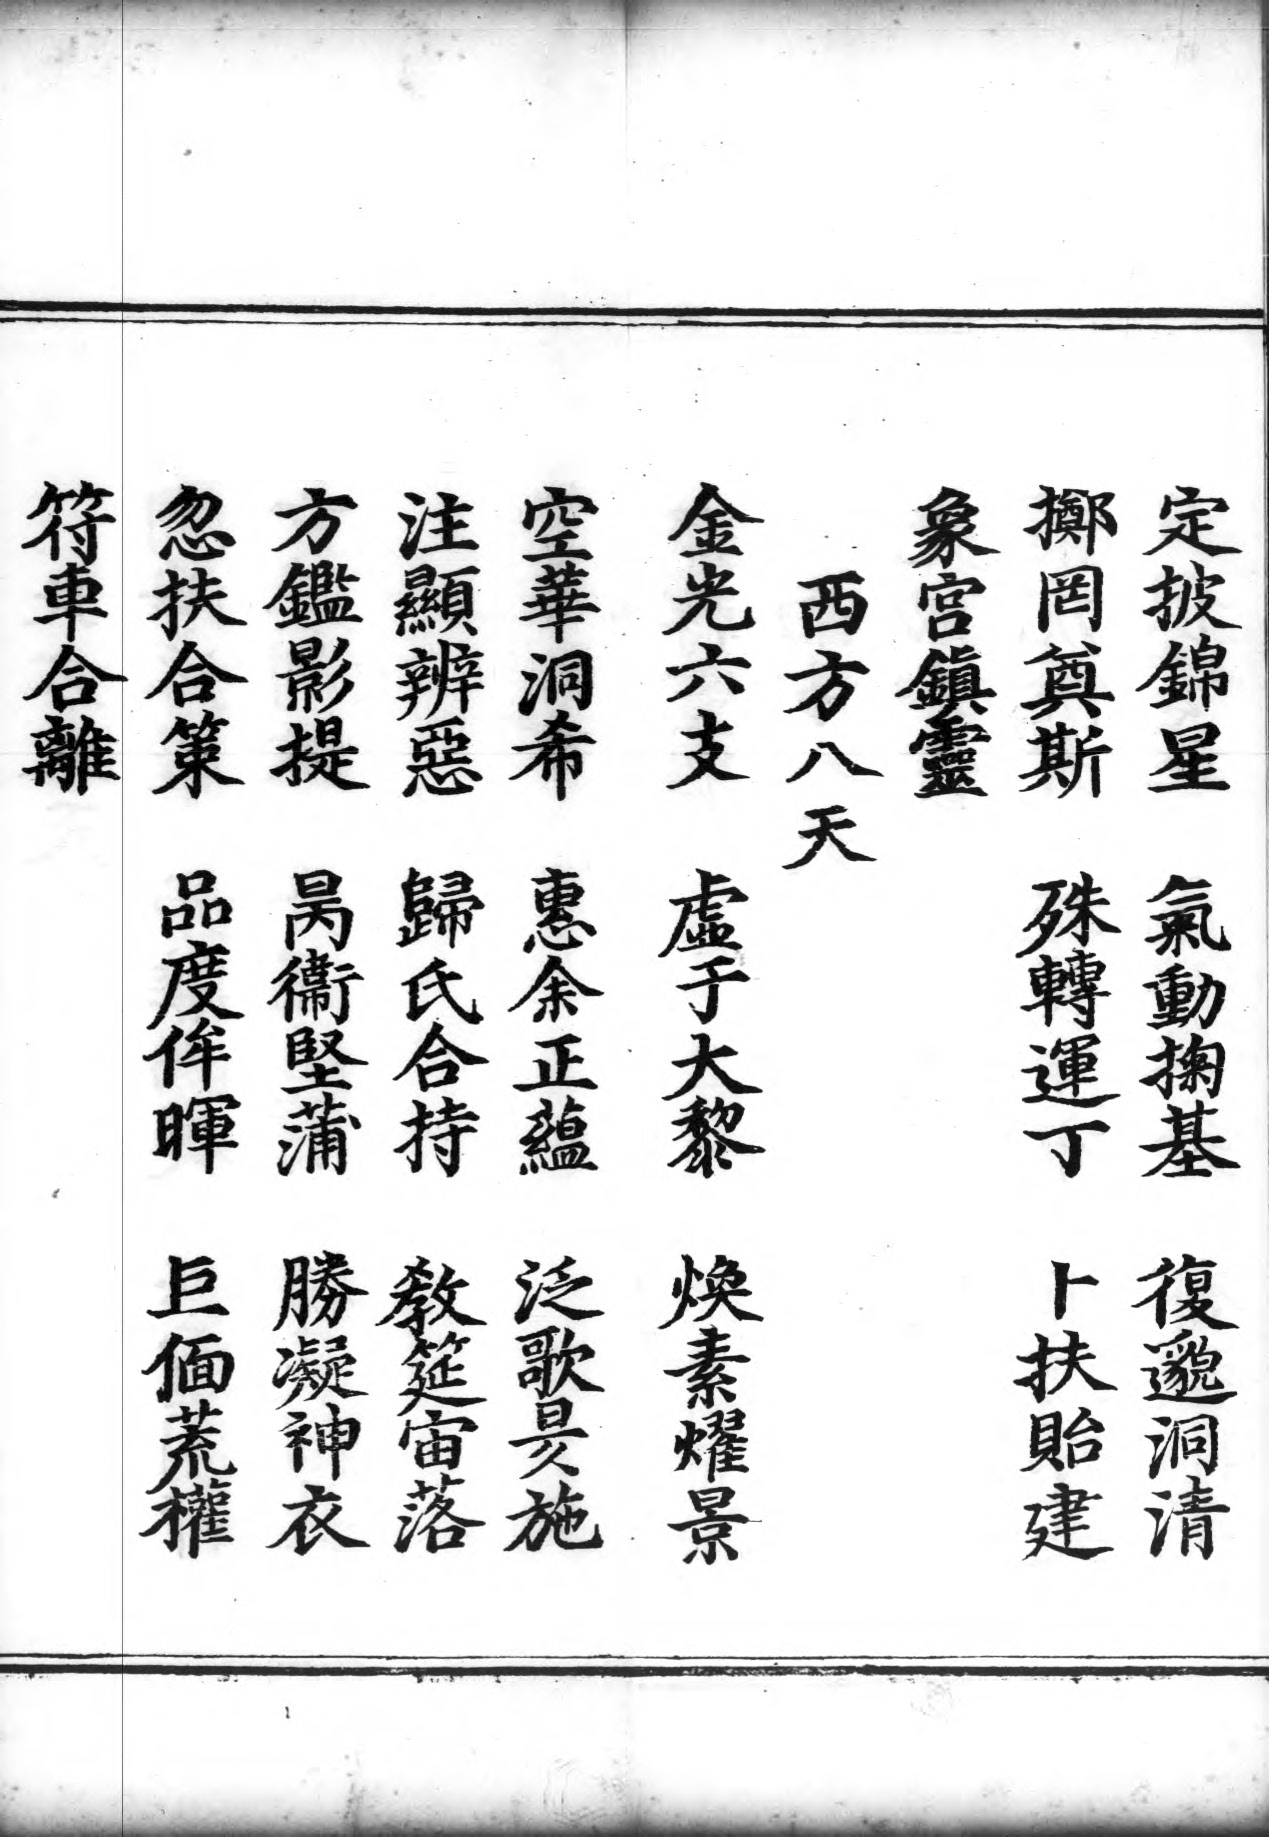 定披錦星 氣動掬基 復邈洞清
擲罔奠斯 殊轉運丁 卜扶貽建
象宮鎮靈
西方八天
金光六支 虛于大黎 煥素耀景
空華洞希 惠余正蘊 泛歌昃施
注顯辨惡 歸氏合持 教筵宙落
方鑑影提 昺衞堅蒲 勝凝神衣
忽扶合策 品度侔暉 巨偭荒權
符車合離